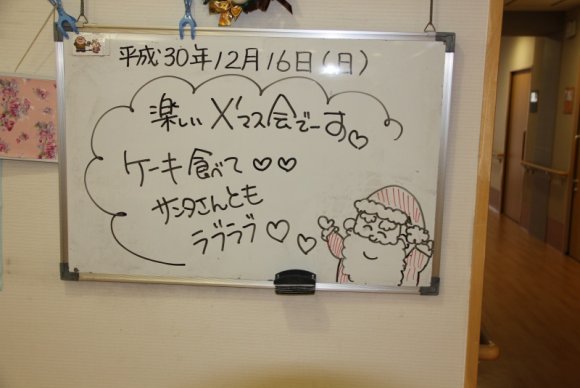 平成30年12月16日(日)
楽しいX'マス会でーす♡
ケーキ食べて♡♡
サンタさんとも
ラブラブ♡♡